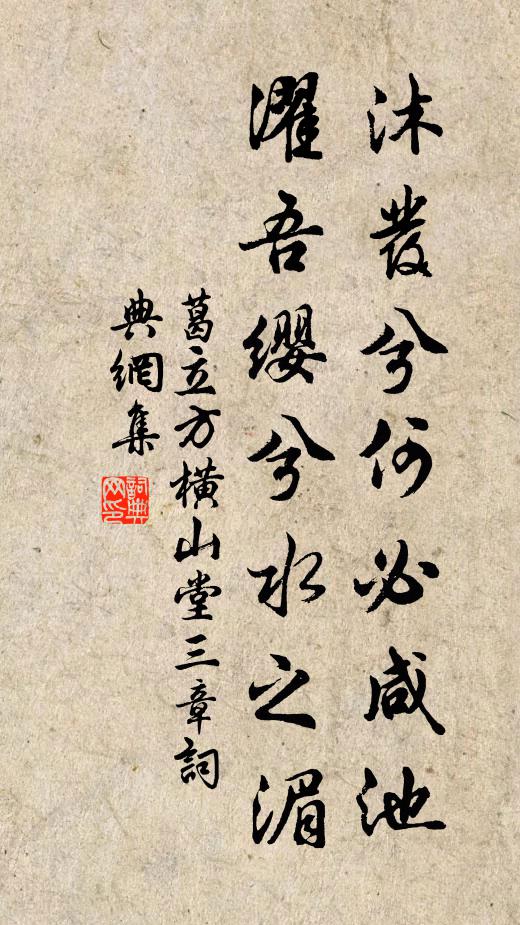 沐發兮何必咸池
濯吾纓兮水之湄
葛立方橫山堂三章詞
典網集
詞典
网印